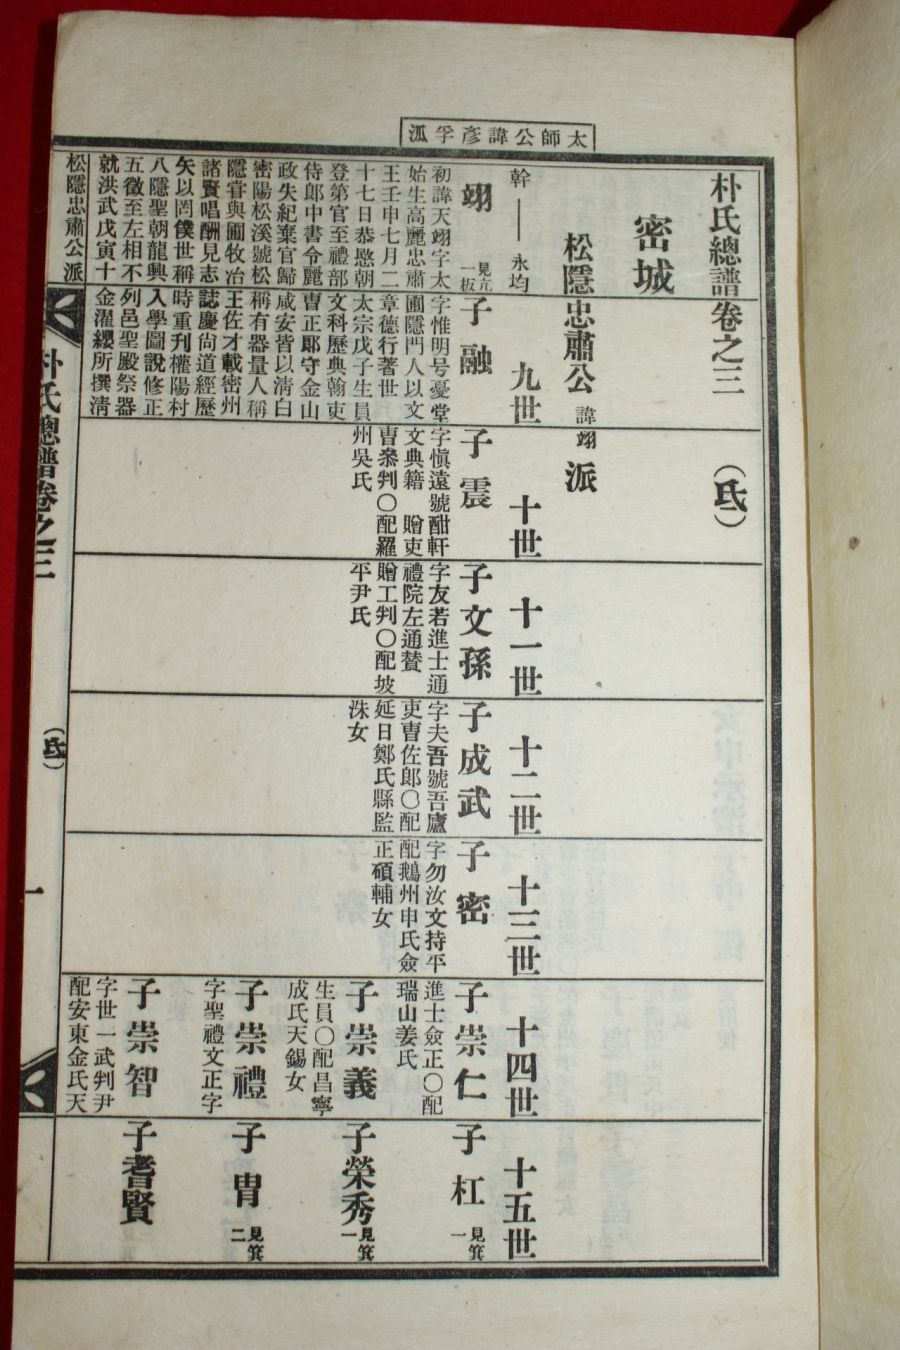 太師公諱彥孚派
朴氏總譜卷之三
(氏)
密城
松隱忠肅公諱翊派
幹——永均
九世
十世
十一世
十二世
十三世
十四世
十五世
翊
見亢一板
初諱天翊字太
始生高麗忠肅
王壬申七月二
十七日恭愍朝
登第官至禮部
侍郎中書令麗
政失紀棄官歸
密陽松溪號松
隱甞與圃牧冶
諸賢唱酬見志
矢以罔僕世稱
八隱聖朝龍興
五徵至左相不
就洪武戊寅十
松隱忠肅公派
子融
字惟明号憂堂
圃隱門人以文
章德行著世
太宗戊子生員
文科歷典翰吏
曺正郎守金山
咸安皆以清白
稱有器量人稱
王佐才載密州
誌慶尙道經歷
時重刋權陽村
入學圖說修正
列邑聖殿祭器
金濯纓所撰淸
子震
字愼遠號酣軒
文典籍 贈吏
曺叅判〇配羅
州吳氏
子文孫
字友若進士通
禮院左通贊
贈工判〇配坡
平尹氏
子成武
字夫吾號吾廬
吏曺佐郎〇配
延日鄭氏縣監
洙女
子密
字勿汝文持平
配鵝州申氏僉
正碩輔女
子崇仁
進士僉正〇配
瑞山姜氏
子崇義
生員〇配昌寧
成氏天錫女
子崇禮
字聖禮文正字
子崇智
字世一武判尹
配安東金氏天
子杠
見箕一
子榮秀
見箕一
子冑
見箕二
子耆賢
朴氏總譜卷之三
(氏)
一